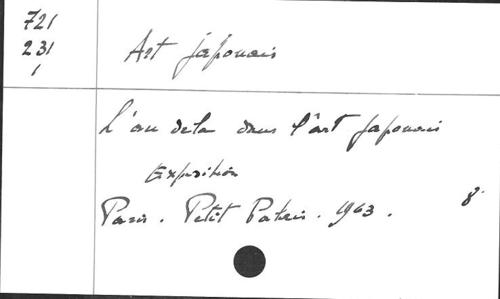 721
231
1
Art japonais
L'au delà dans l'art Japonais
Exposition
Paris. Petit Palais. 1963. 8°